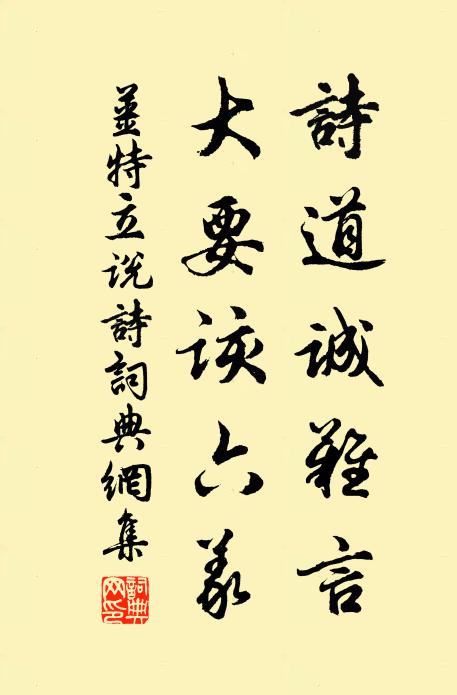 詩道誠難言
大要該六義
姜特立說詩詞典網集
詞典網印